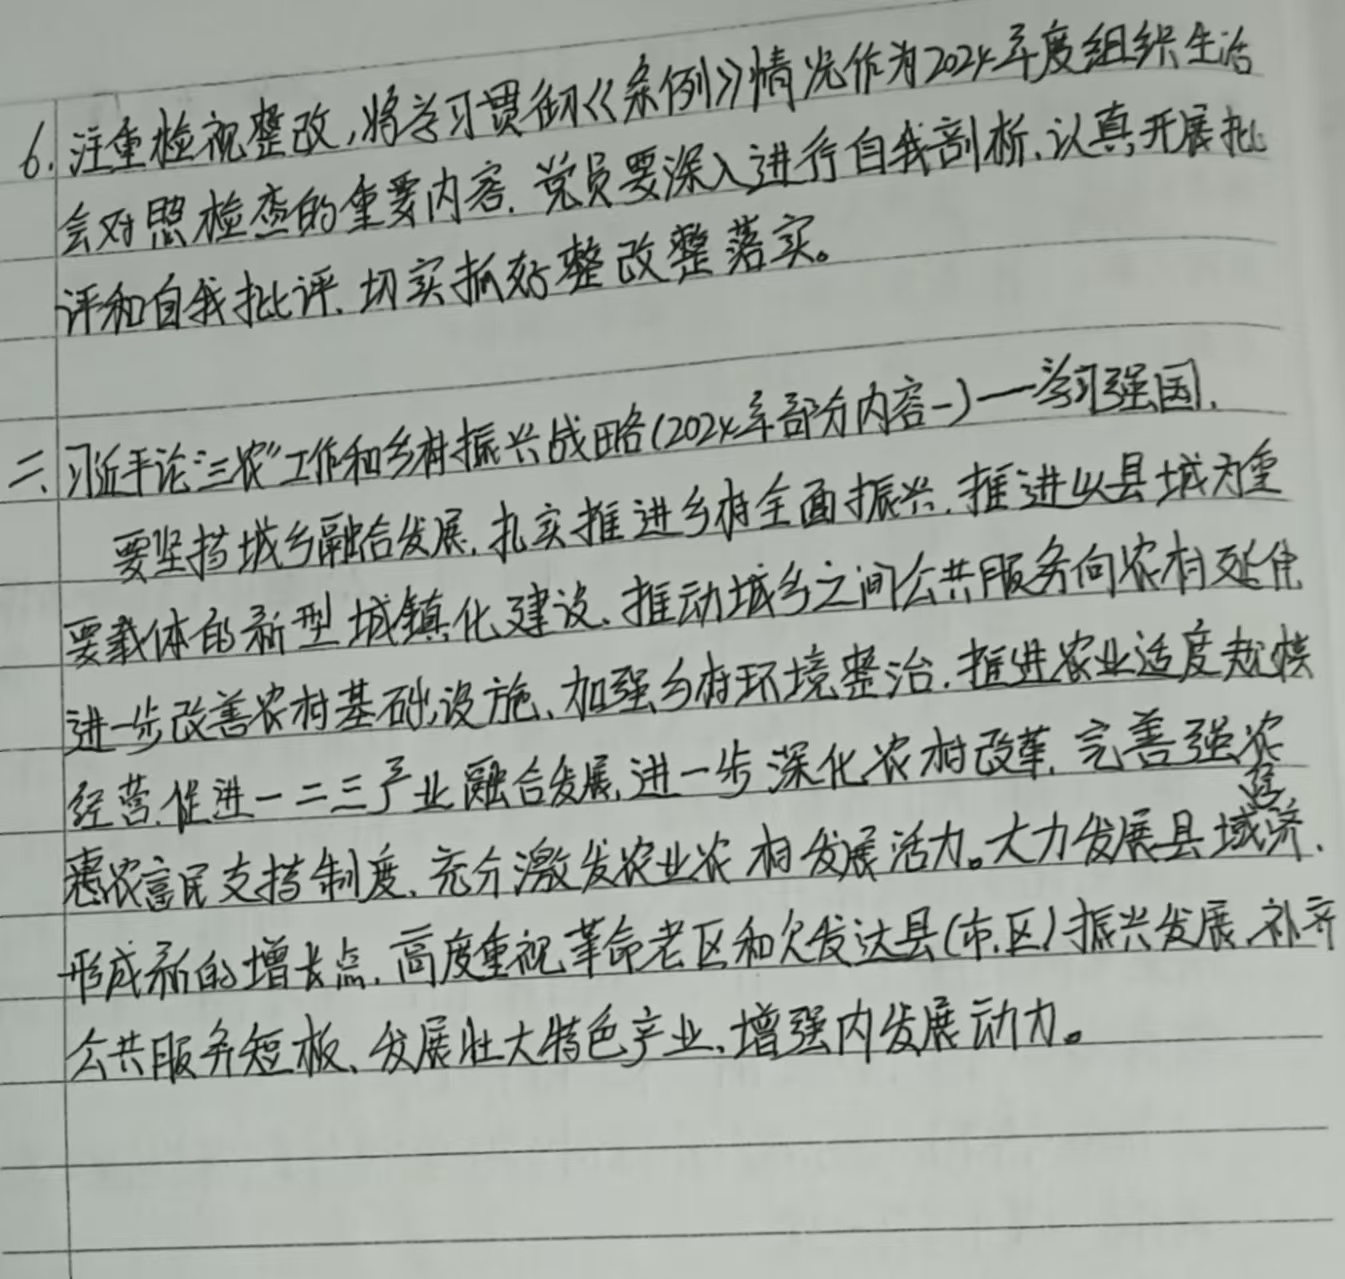 6. 注重检视整改,将学习贯彻《条例》情况作为2024年度组织生活
会对照检查的重要内容.党员要深入进行自我剖析、认真开展批
评和自我批评、切实抓好整改整落实。
二、习近平论“三农”工作和乡村振兴战略(2024年部分内容一)一学习强国.
要坚持城乡融合发展,扎实推进乡村全面振兴.推进以县城为重
要载体的新型城镇化建设、推动城乡之间公共服务向农村延伸
进一步改善农村基础设施、加强乡村环境整治.推进农业适度规模
经营.促进一二三产业融合发展,进一步深化农村改革.完善强农
惠农富民支持制度.充分激发农业农村发展活力。大力发展县域经济.
形成新的增长点.高度重视革命老区和欠发达县(市.区)振兴发展.补齐
公共服务短板、发展壮大特色产业、增强内发展动力。